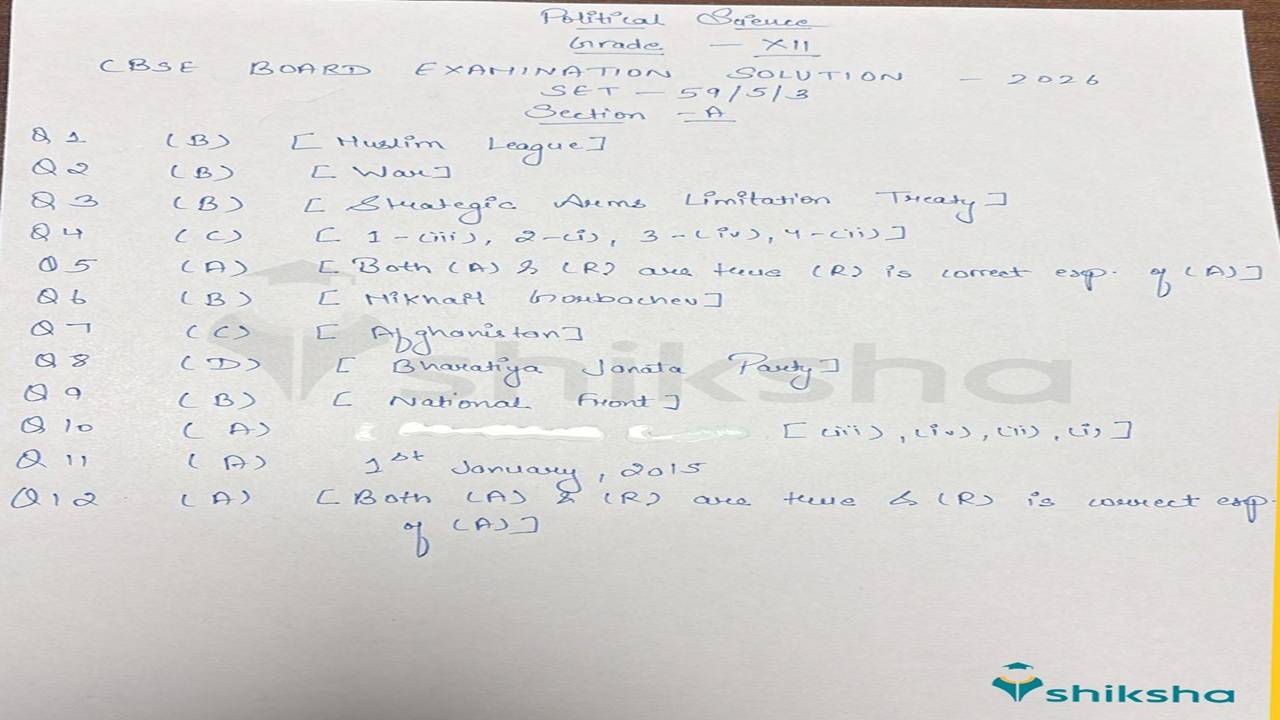 Political Science
Grade - XII
CBSE BOARD EXAMINATION SOLUTION - 2026
SET - 59/5/3
Section - A
Q 1 (B) [ Muslim League]
Q 2 (B) [ War]
Q 3 (B) [ Strategic Arms Limitation Treaty]
Q 4 (C) [ 1-(iii), 2-(i), 3-(iv), 4-(ii)]
Q 5 (A) [ Both (A) & (R) are true (R) is correct exp. of (A)]
Q 6 (B) [ Mikhail Gorbachev]
Q 7 (C) [ Afghanistan]
Q 8 (D) [ Bharatiya Janata Party]
Q 9 (B) [ National Front]
Q 10 (A) [ (iii), (iv), (ii), (i)]
Q 11 (A) 1st January, 2015
Q 12 (A) [ Both (A) & (R) are true & (R) is correct exp.
of (A)]
shiksha
shiksha